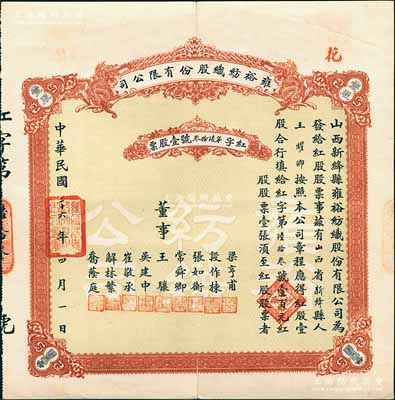 雍裕紡織股份有限公司
紅字第陸拾叁號壹股票
山西新絳縣雍裕紡織股份有限公司為
發給紅股股票事茲有山西省新絳縣人
王耀卿按照本公司章程應得紅股壹
股合行填給紅字第陸拾叁號壹百元紅
股股票壹張須至紅股股票者
董事
梁亨甫
段作棟
張如衡
常舜卿
王驤
吳建中
崔敬承
解林繁
喬蔭庭
中華民國二十六年四月一日
紅字第
號